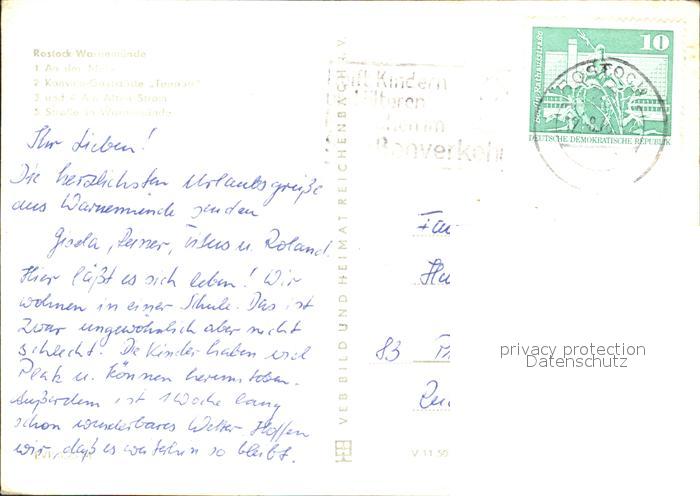 Rostock Warnemünde
1 An der Mole
2 Konsum-Gaststätte „Teepott"
3 und 4 Am Alten Strom
5 Straße in Warnemünde
Ihr Lieben!
Die herzlichsten Urlaubsgrüße
aus Warnemünde senden
Gisela, u. Roland.
Hier läßt es sich leben! Wir
wohnen in einer Schule. Das ist
zwar ungewöhnlich aber nicht
schlecht. Die Kinder haben viel
Platz u. können herumtoben.
Außerdem ist 1 Woche lang
schon wunderbares Wetter. Hoffen
wir, daß es weiterhin so bleibt.
VEB BILD UND HEIMAT REICHENBACH i. V.
V 11 50
Kindern
Älteren
10
Berlin, Rathausstraße
DEUTSCHE DEMOKRATISCHE REPUBLIK
ROSTOCK
Fa
83
privacy protection
Datenschutz